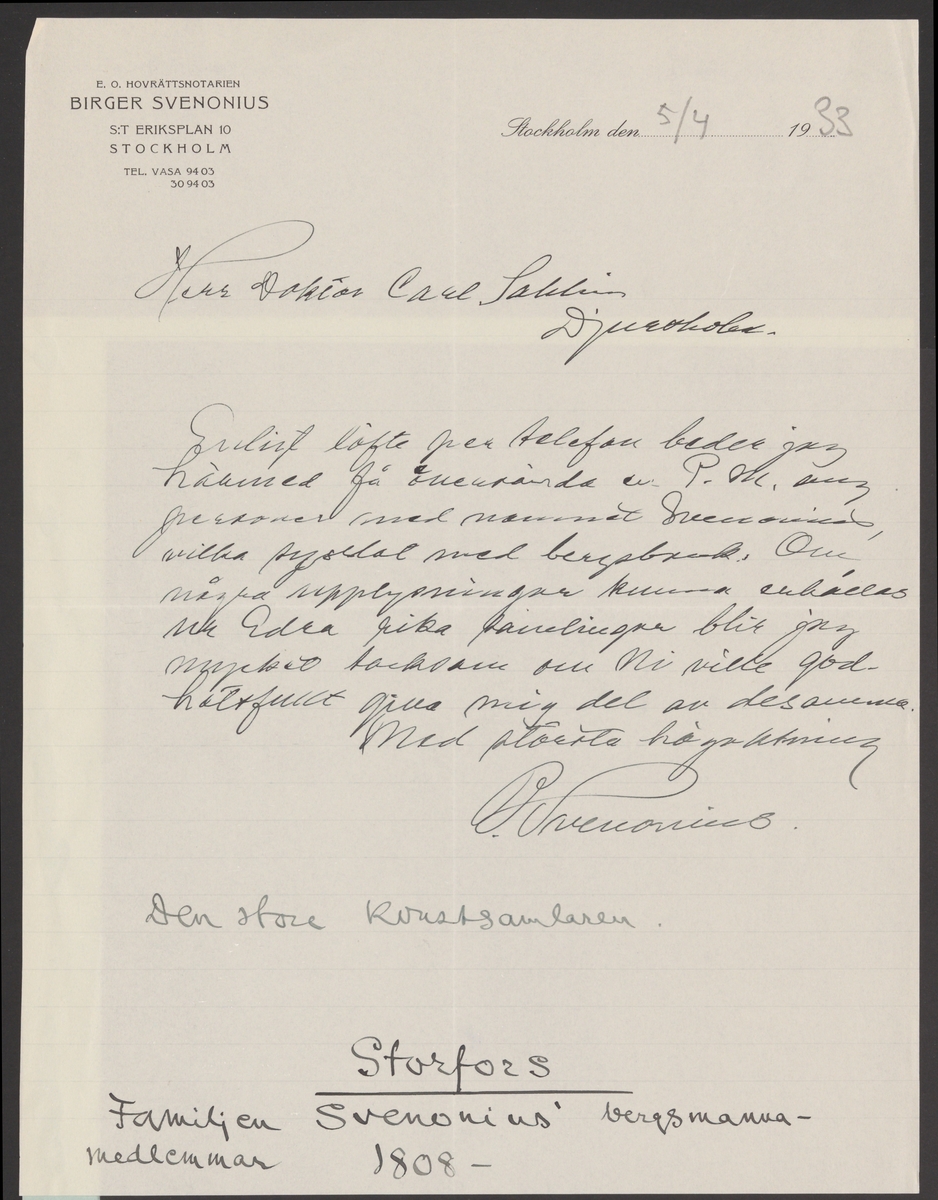 E. O. HOVRÄTTSNOTARIEN
BIRGER SVENONIUS
S:T ERIKSPLAN 10
STOCKHOLM
TEL. VASA 94 03
30 94 03
Stockholm den 5/4 1933
Herr Doktor Carl Sahlin
Djursholm.
Enligt löfte per telefon beder jag
härmed få översända en P. M. ang
personer med namnet Svenonius,
vilka sysslat med bergsbruk. Om
några upplysningar kunna erhållas
ur Edra rika samlingar blir jag
mycket tacksam om Ni ville god-
hetsfullt giva mig del av desamma.
Med största högaktning
B. Svenonius.
Den store konstsamlaren.
Storfors
Familjen Svenonius' bergsmanna-
medlemmar 1808 -